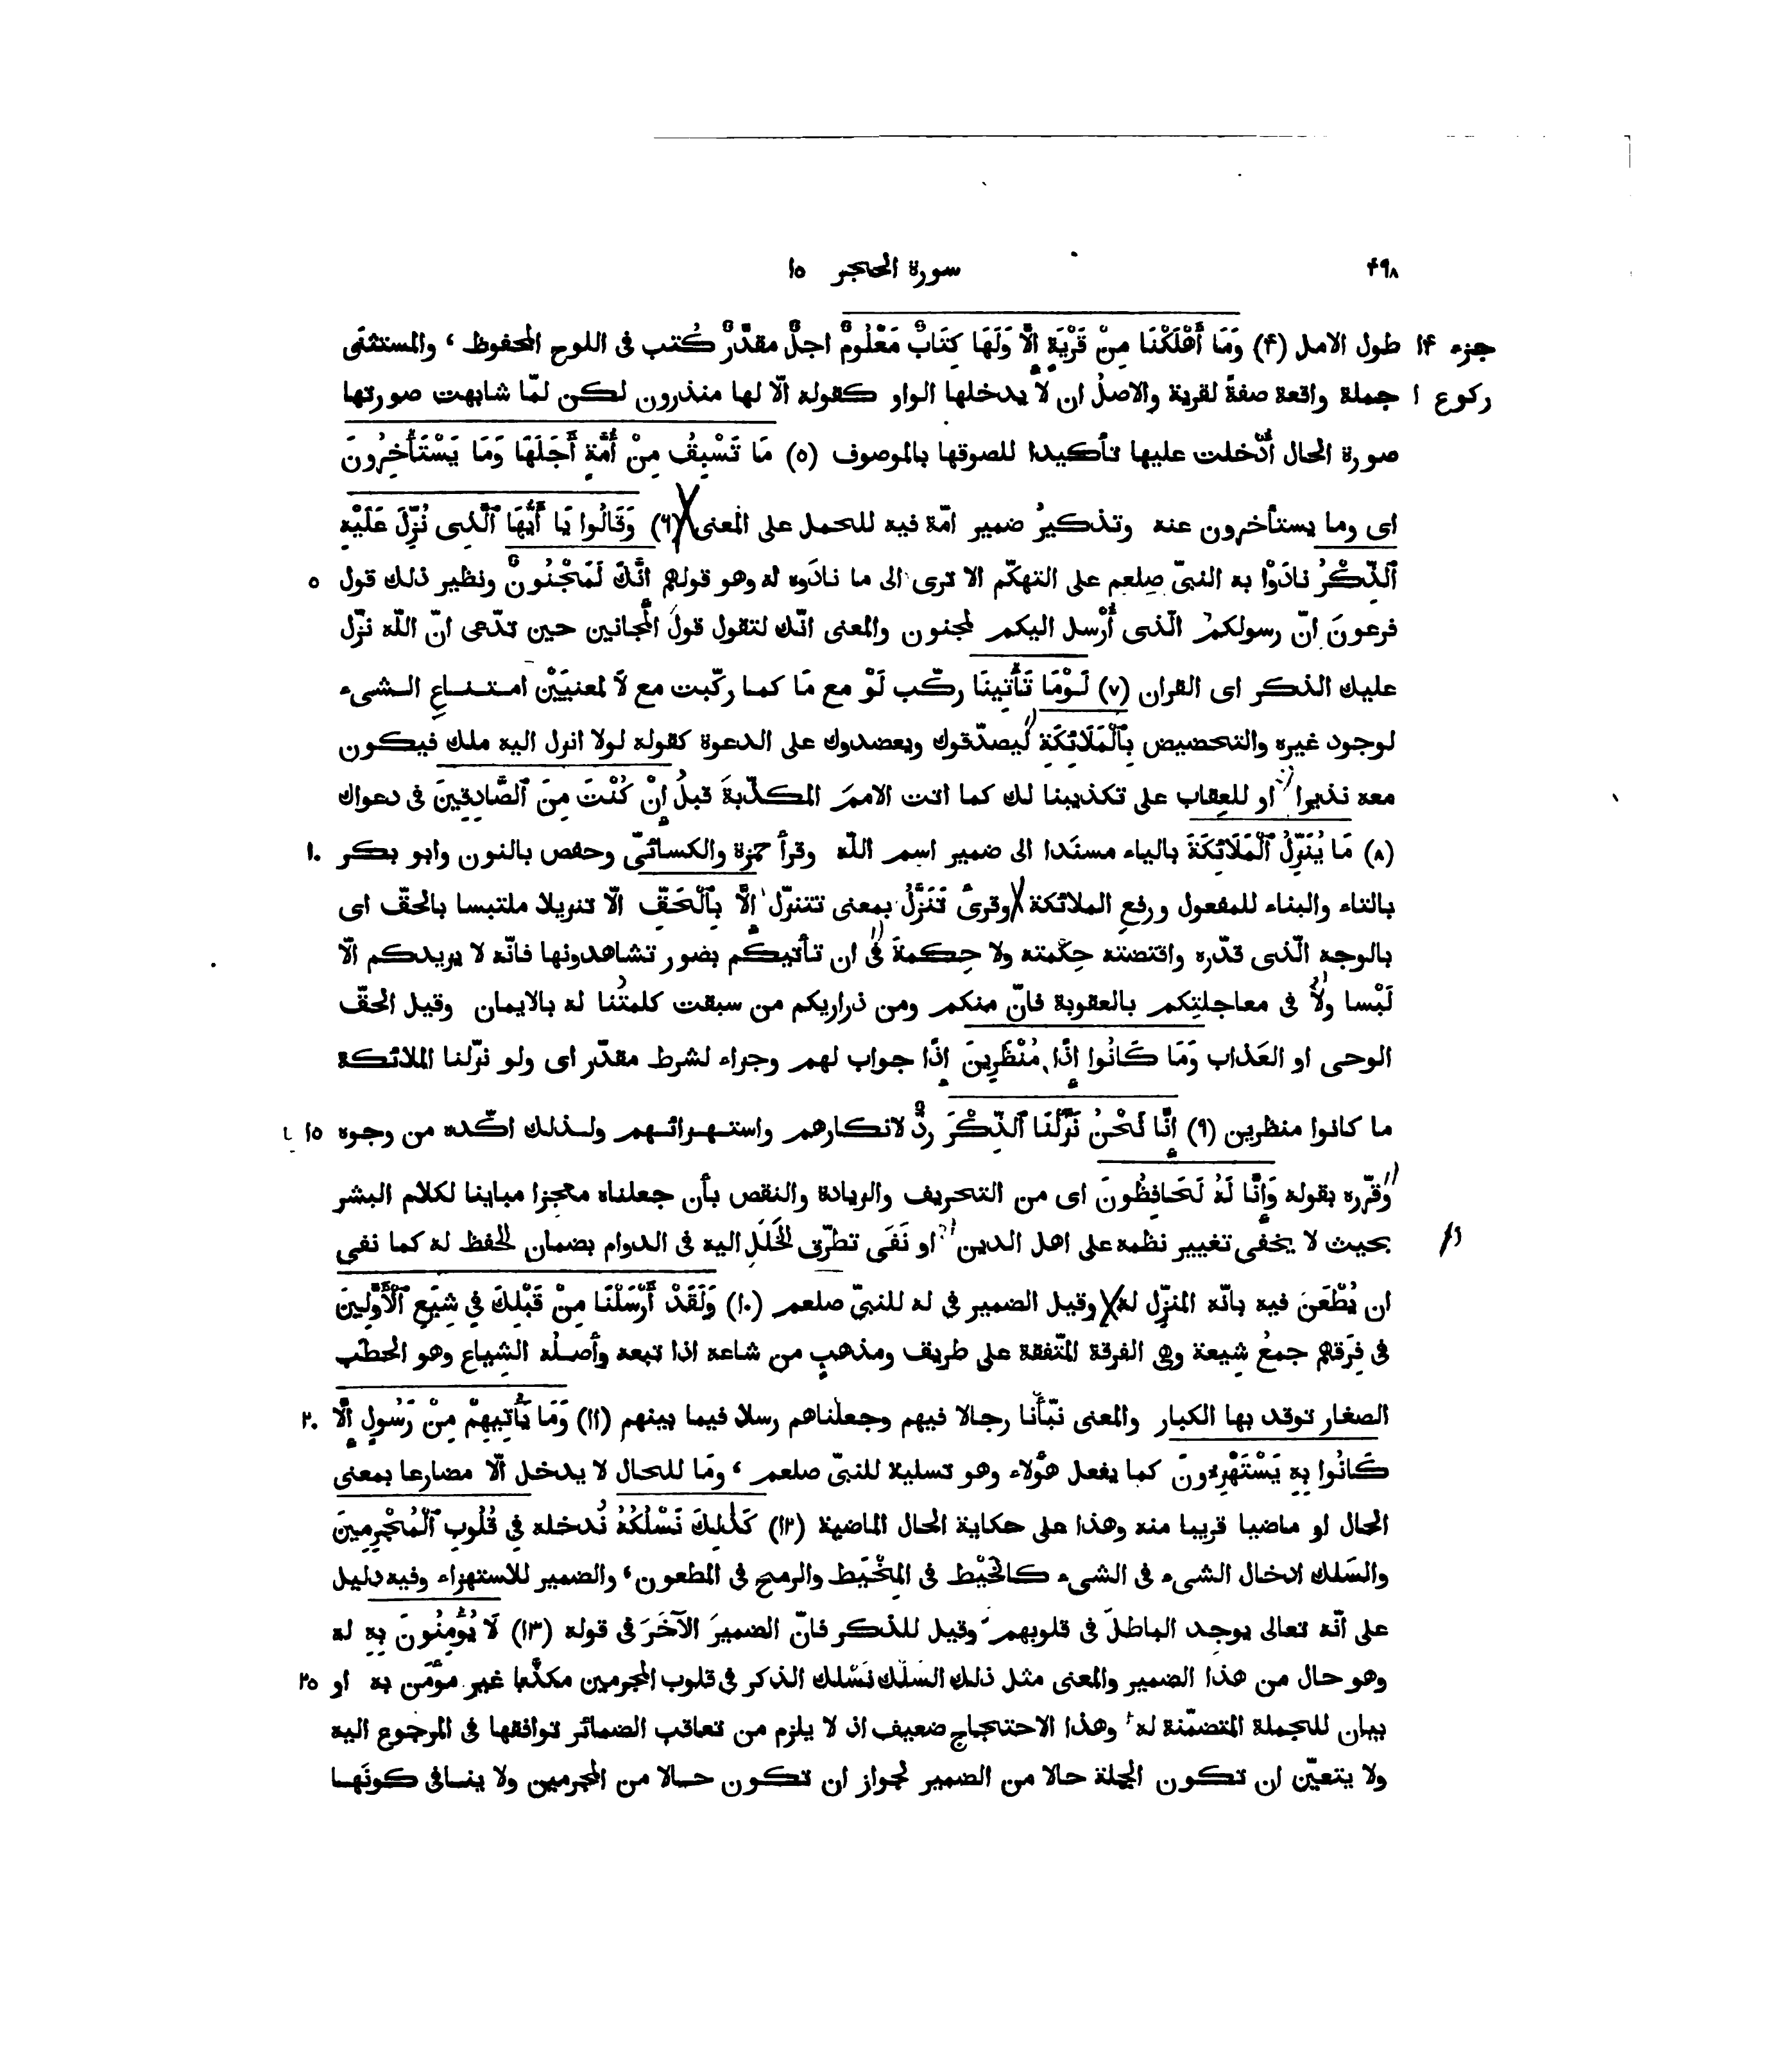 ۴۹۸ سورة الحجر ۱۵
جزء ۱۴ طول الامل (۴) وَمَا أَهْلَكْنَا مِنْ قَرْيَةٍ إِلَّا وَلَهَا كِتَابٌ مَعْلُومٌ اجلٌ مقدَّرٌ كُتب فى اللوح المحفوظ ، والمستثنَى
ركوع ۱ جملة واقعة صفةً لقرية والاصلُ ان لا يدخلها الواو كقوله الّا لها منذرون لكن لمّا شابهت صورتها
صورة الحال أُدْخلت عليها تأكيدا للصوقها بالموصوف (۵) مَا تَسْبِقُ مِنْ أُمَّةٍ أَجَلَهَا وَمَا يَسْتَأْخِرُونَ
اى وما يستأخرون عنه وتذكيرُ ضمير امّة فيه للحمل على المعنى (۶) وَقَالُوا يَا أَيُّهَا ٱلَّذِى نُزِّلَ عَلَيْهِ
ٱلذِّكْرُ نادَوْا به النبىّ صلعم على التهكّم الا ترى الى ما نادَوه له وهو قولهم إِنَّكَ لَمَجْنُونٌ ونظير ذلك قول ۵
فرعونَ انّ رسولكمُ الّذى أُرْسل اليكم لمجنون والمعنى انّك لتقول قولَ المجانين حين تدّعى انّ اللّه نزّل
عليك الذكر اى القران (۷) لَوْمَا تَأْتِينَا ركّب لَوْ مع مَا كما ركّبت مع لَا لمعنيَيْن امتناعِ الشىء
لوجود غيره والتحضيض بِٱلْمَلَائِكَةِ ليصدّقوك ويعضدوك على الدعوة كقوله لولا انزل اليه ملك فيكون
معه نذيرا او للعِقاب على تكذيبنا لك كما اتت الاممَ المكذّبةَ قبلُ إِنْ كُنْتَ مِنَ ٱلصَّادِقِينَ فى دعواك
(۸) مَا يُنَزِّلُ ٱلْمَلَائِكَةَ بالياء مسنَدا الى ضمير اسم اللّه وقرأ حمزة والكسائىّ وحفص بالنون وابو بكر ۱۰
بالتاء والبناء للمفعول ورفعِ الملائكة وقرئ تَنَزَّلُ بمعنى تتنزّل إِلَّا بِٱلْحَقِّ الّا تنزيلا ملتبسا بالحقّ اى
بالوجه الّذى قدّره واقتضته حِكْمته ولا حِكمةَ فى ان تأتيكم بصور تشاهدونها فانّه لا يزيدكم الّا
لَبْسا ولا فى معاجلتِكم بالعقوبة فانّ منكم ومن ذراريكم من سبقت كلمتُنا له بالايمان وقيل الحقّ
الوحى او العَذاب وَمَا كَانُوا إِذًا مُنْظَرِينَ إِذًا جواب لهم وجزاء لشرط مقدّر اى ولو نزّلنا الملائكة
ما كانوا منظرين (۹) إِنَّا نَحْنُ نَزَّلْنَا ٱلذِّكْرَ ردٌّ لانكارهم واستهزائهم ولذلك اكّده من وجوه ۱۵
وقرّره بقوله وَإِنَّا لَهُ لَحَافِظُونَ اى من التحريف والزيادة والنقص بأن جعلناه معجزا مباينا لكلام البشر
بحيث لا يخفى تغيير نظمه على اهل الدين او نَفَى تطرّق الخَلَلِ اليه فى الدوام بضمان الحفظ له كما نفى
ان يُطْعَنَ فيه بانّه المنزِّل له وقيل الضمير فى له للنبىّ صلعم (۱۰) وَلَقَدْ أَرْسَلْنَا مِنْ قَبْلِكَ فِي شِيَعِ ٱلْأَوَّلِينَ
فى فِرَقهم جمعُ شِيعة وهى الفرقة المتّفقة على طريق ومذهبٍ من شاعه اذا تبعه وأصلُه الشِياع وهو الحطَب
الصغار توقد بها الكبار والمعنى نبّأنا رجالا فيهم وجعلناهم رسلا فيما بينهم (۱۱) وَمَا يَأْتِيهِمْ مِنْ رَسُولٍ إِلَّا ۲۰
كَانُوا بِهِ يَسْتَهْزِءُونَ كما يفعل هؤلاء وهو تسلية للنبىّ صلعم ، ومَا للحال لا يدخل الّا مضارعا بمعنى
الحال او ماضيا قريبا منه وهذا على حكاية الحال الماضية (۱۲) كَذٰلِكَ نَسْلُكُهُ نُدخله فِي قُلُوبِ ٱلْمُجْرِمِينَ
والسَلك ادخال الشىء فى الشىء كالخَيْط فى المِخْيَط والرمح فى المطعون ، والضمير للاستهزاء وفيه دليل
على أنّه تعالى يوجد الباطلَ فى قلوبهم وقيل للذكر فانّ الضميرَ الآخَرَ فى قوله (۱۳) لَا يُؤْمِنُونَ بِهِ له
وهو حال من هذا الضمير والمعنى مثل ذلك السَلْك نَسْلك الذكر فى قلوب المجرمين مكذَّبا غير مؤمَن به او ۲۵
بيان للجملة المتضمّنة له وهذا الاحتجاج ضعيف اذ لا يلزم من تعاقب الضمائر توافقها فى المرجوع اليه
ولا يتعيّن ان تكون الجملة حالا من الضمير لجواز ان تكون حالا من المجرمين ولا ينافى كونَها